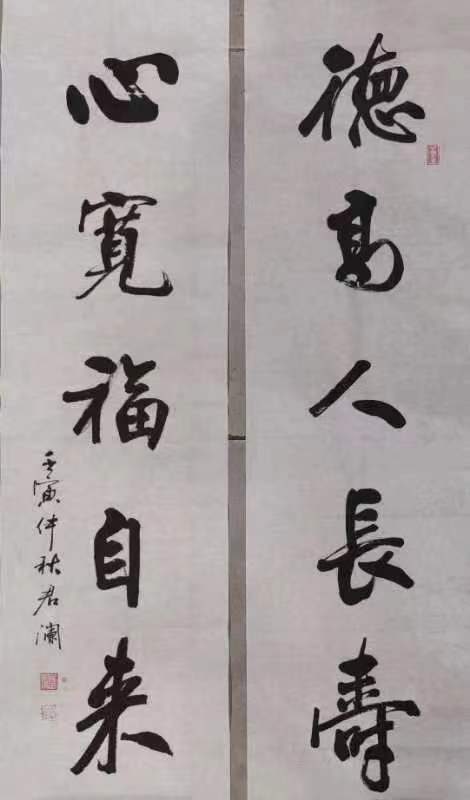 德高人長壽
心寬福自来
壬寅仲秋君瀾